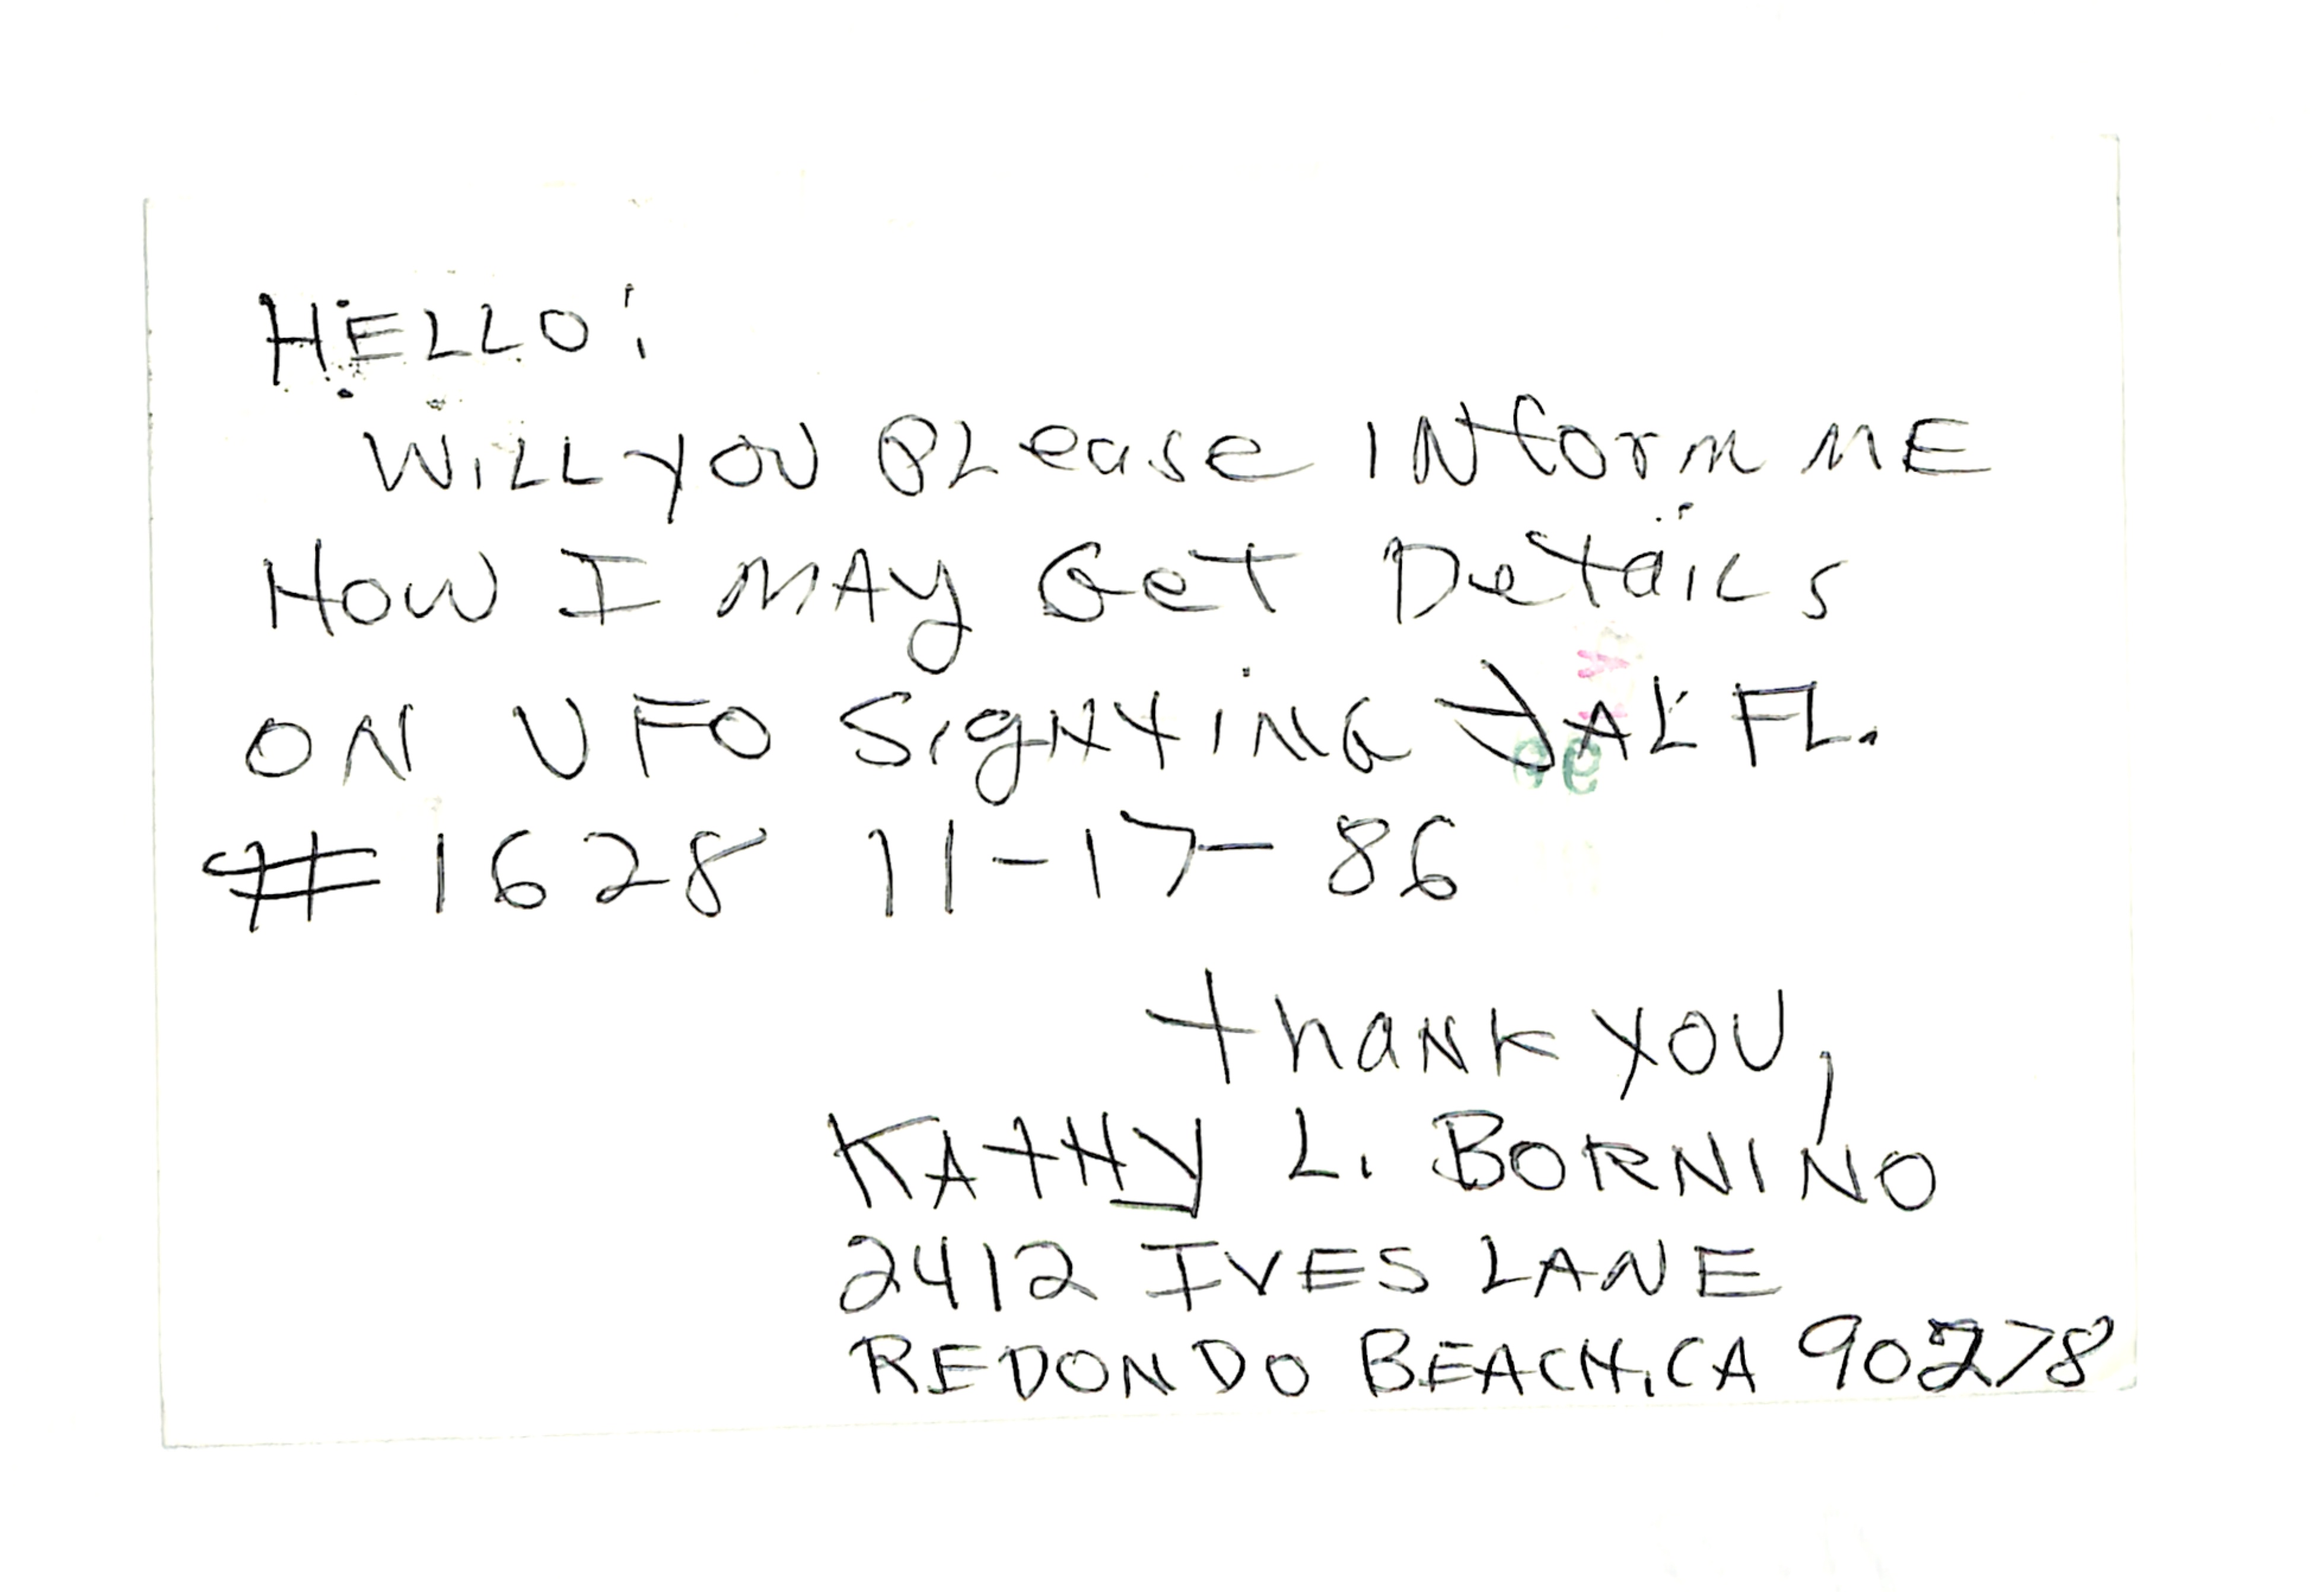 HELLO!
WILL YOU PLease INform ME
HOW I MAY Get Details
ON UFO SigHtiNG JAL FL.
#1628 11-17-86
thaNk YOU,
KAtHY L. BORNINO
2412 IVES LANE
REDONDO BEACH, CA 90278